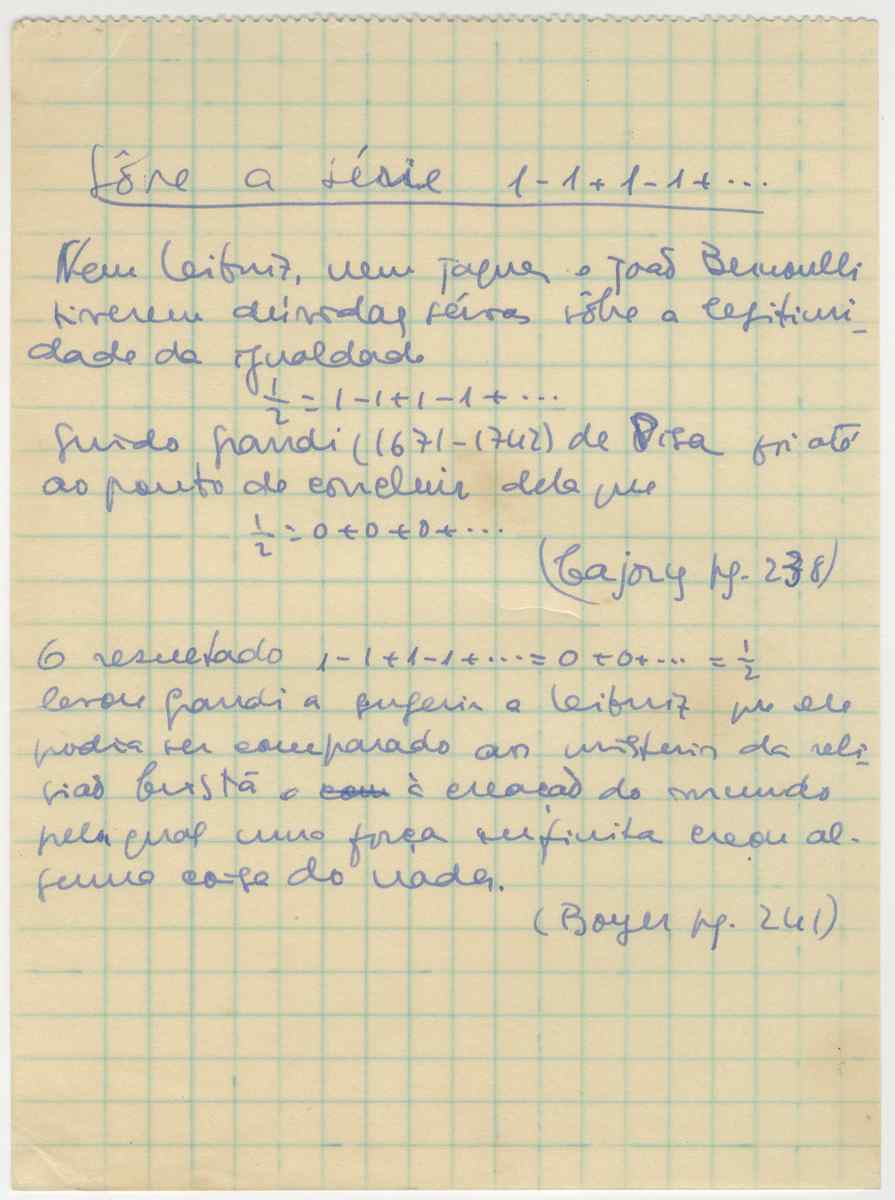 Sôbre a série 1-1+1-1+...
Nem Leibniz, nem Jaques e João Bernoulli
tiveram dúvidas sérias sôbre a legitimi-
dade da igualdade
1/2 = 1-1+1-1+...
Guido Grandi (1671-1742) de Pisa foi até
ao ponto de concluir dela que
1/2 = 0+0+0+...
(Cajory pg. 238)
O resultado 1-1+1-1+... = 0+0+... = 1/2
levou Grandi a sugerir a Leibniz que ele
podia ser comparado aos mistérios da reli-
gião Cristã e à creação do mundo
pela qual uma força infinita creou al-
guma coisa do nada.
(Boyer pg. 241)